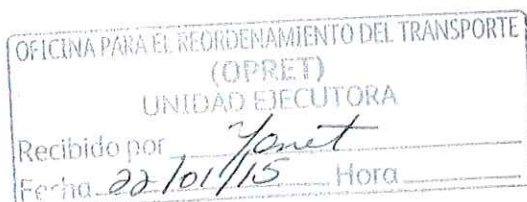 OFICINA PARA EL REORDENAMIENTO DEL TRANSPORTE
(OPRET)
UNIDAD EJECUTORA
Recibido por Yonet
Fecha 22/01/15 Hora